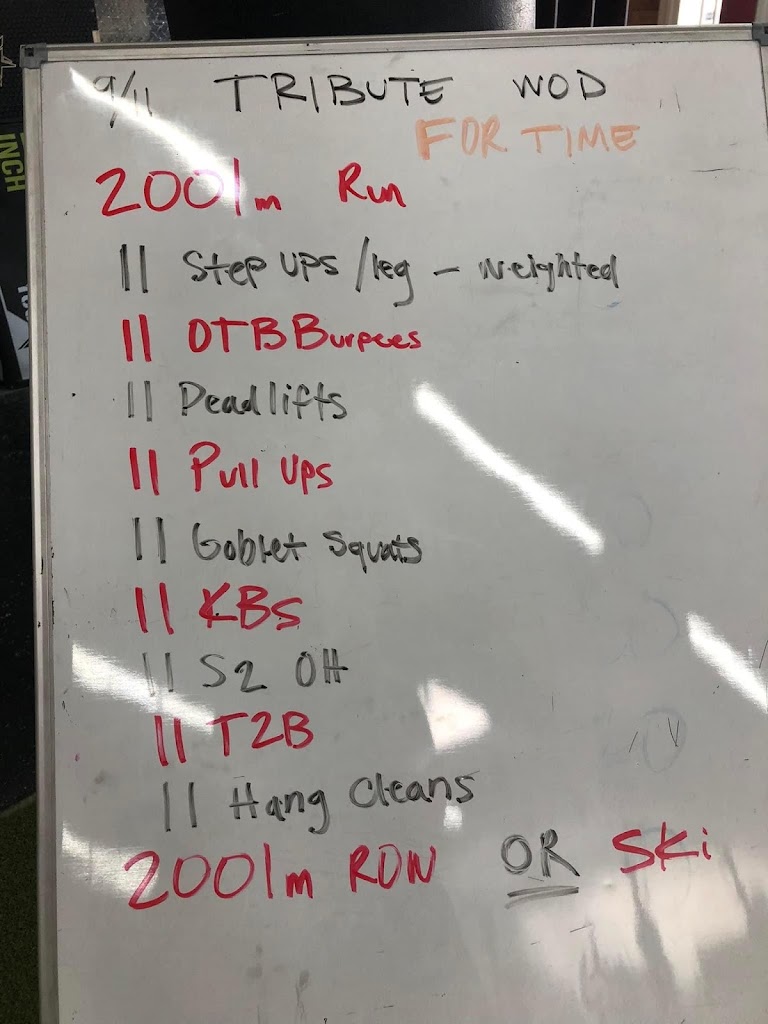 9/11 TRIBUTE WOD
FOR TIME
2001m Run
11 Step ups /leg - weighted
11 OTB Burpees
11 Deadlifts
11 Pull ups
11 Goblet squats
11 KBs
11 S2 OH
11 T2B
11 Hang Cleans
2001m ROW OR Ski
INCH